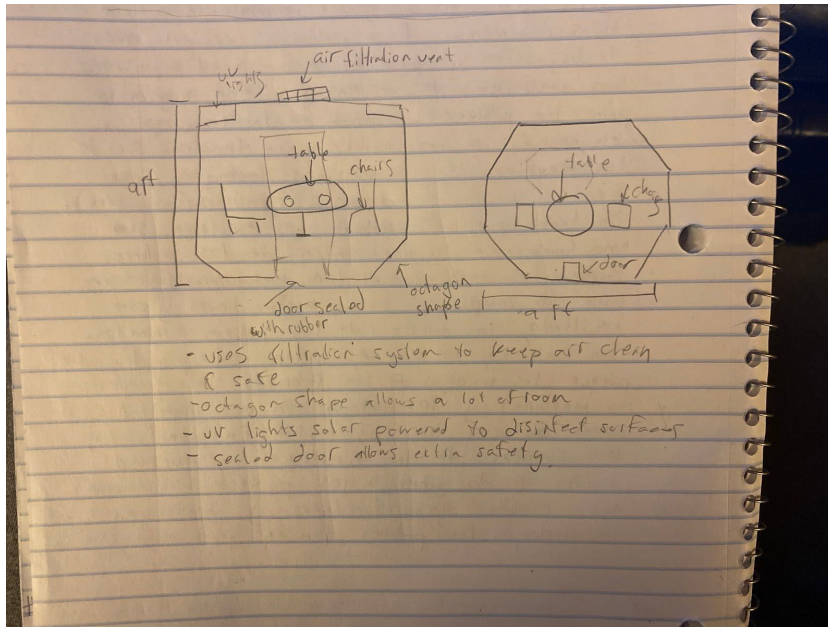 air filtration vent
uv lights
table
chairs
9ft
door sealed
with rubber
octagon
shape
table
chairs
door
9 ft
- uses filtration system to keep air clean
& safe
- octagon shape allows a lot of room
- uv lights solar powered to disinfect surfaces
- sealed door allows extra safety.